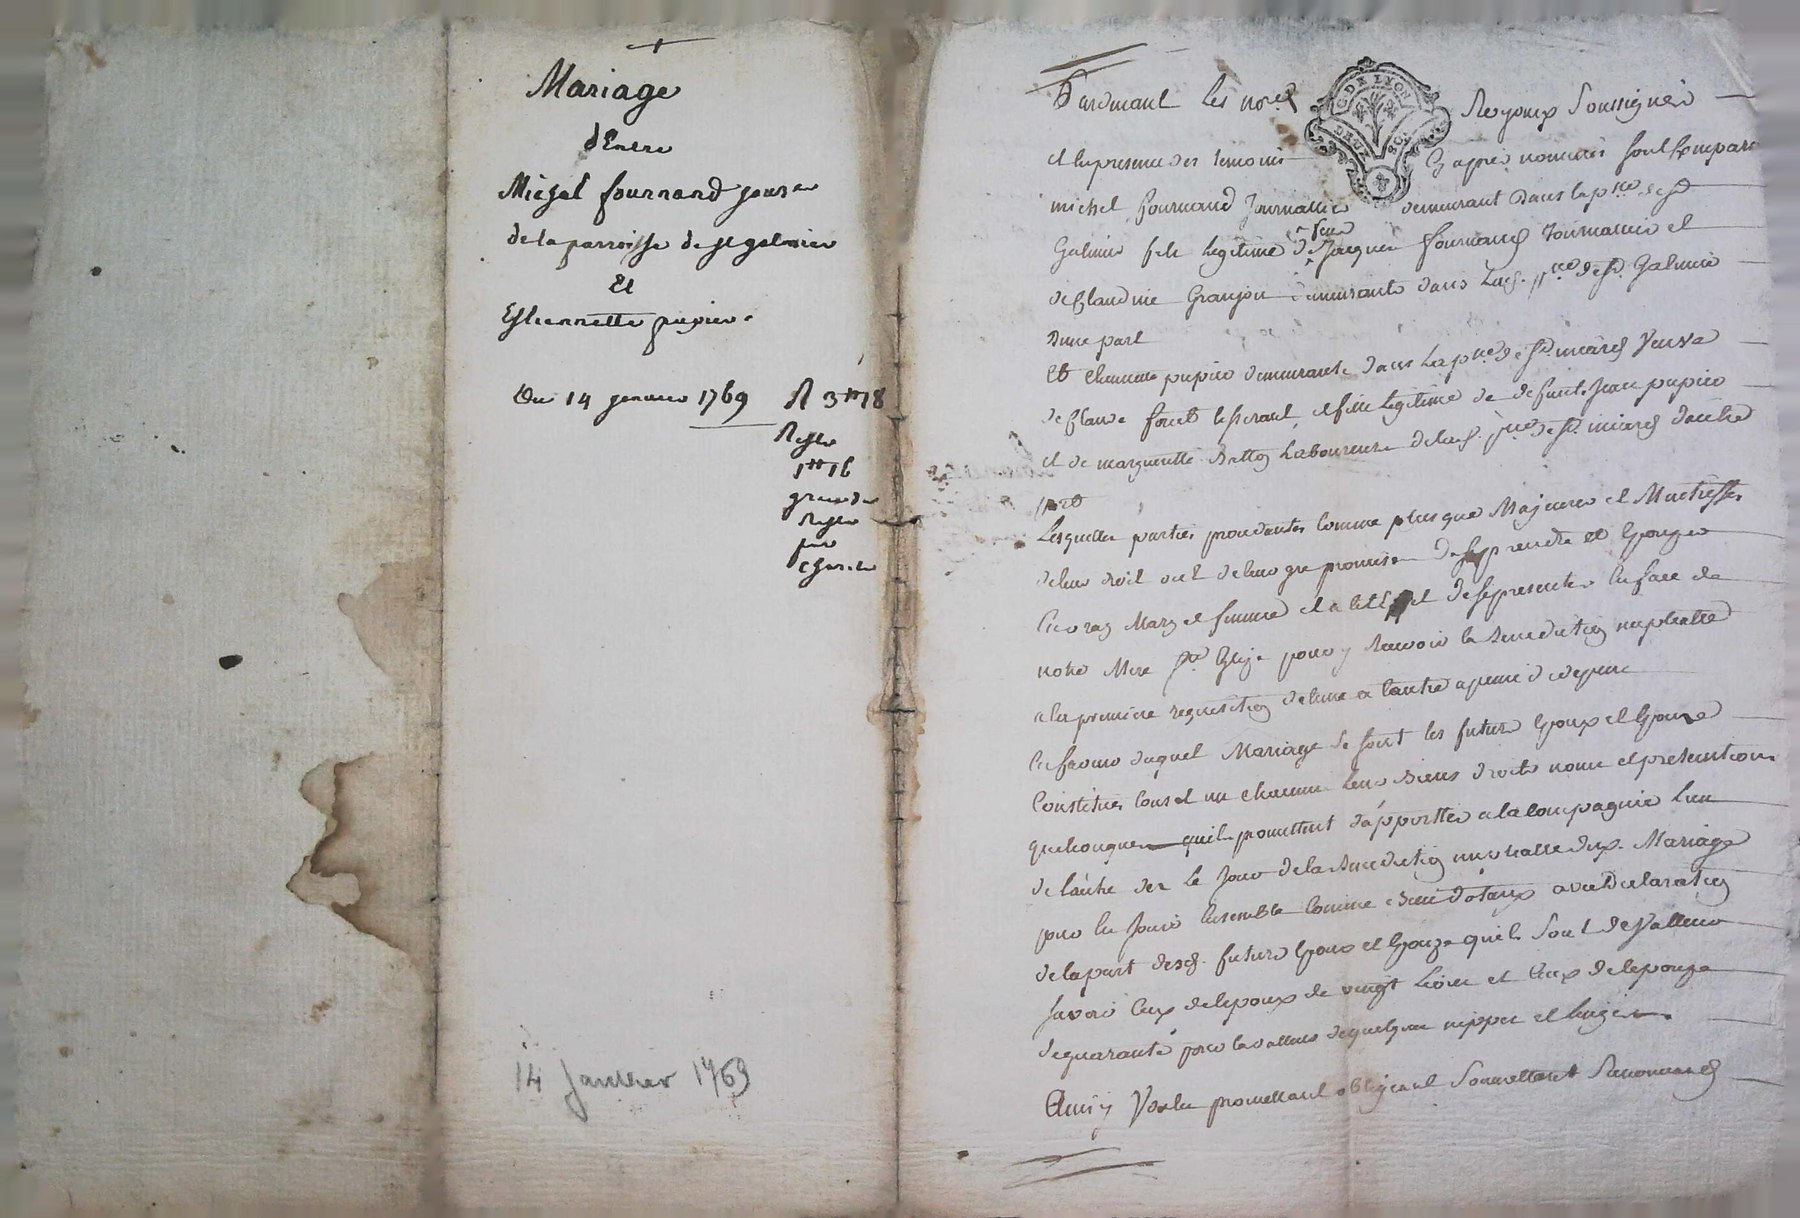 Mariage
d'Entre
Michel fournand jour.er
de la parroisse de st galmier
Et
Estiennette pupier.
Du 14 janvier 1769
R 3# 18
Reste
1# 16
Reste
par
charité
14 Janvier 1769
G. DE LYON
DEUX SOLS
Pardevant Les not.es Royaux Soussignés
et en presence des temoins Cy apres nommés sont Comparu
michel fournand Journallier demeurant dans la p.sse de st
Galmier fils legitime de feu Jacques fournand Journallier et
de Claudine Granjon demeurante dans lad. p.sse de st. Galmier
d'une part
Et Etiennette pupier demeurante dans la p.sse de st. medard Veuve
de Claude foret tisserant, et fille legitime de defunt Jean pupier
et de margueritte Laboureurs de lad. p.sse de st. medard d'autre
part
Lesquelles parties procedantes Comme plus que Majeures et Maitresses
de leur droit ont de leur gre promis de se prendre et Epouzer
En vray Mary et femme et a cet effet de se presenter En face de
notre Mere ste Eglize pour y Recevoir la Benediction nuptialle
a la premiere requisition de l'une a l'autre a peine de depens
En faveur duquel Mariage Se sont les futurs Epoux et Epouze
Constitués tous et un chacuns leurs Biens droits noms et pretentions
quelconques qu'ils promettent d'apportter a la Compagnie l'un
de l'autre des le Jour de la Benediction nuptialle dud. Mariage
pour En Jouir Ensemble Comme Biens dotaux avec Declaration
de la part desd. futurs Epoux et Epouze qu'ils Sont de Valleur
Savoir Ceux de l'epoux de vingt Livres et Ceux de l'epouze
de quarante pour la valleur de quelques nippes et linges
Ainsy Voulu promettant obligeant Soumettant Renonçant